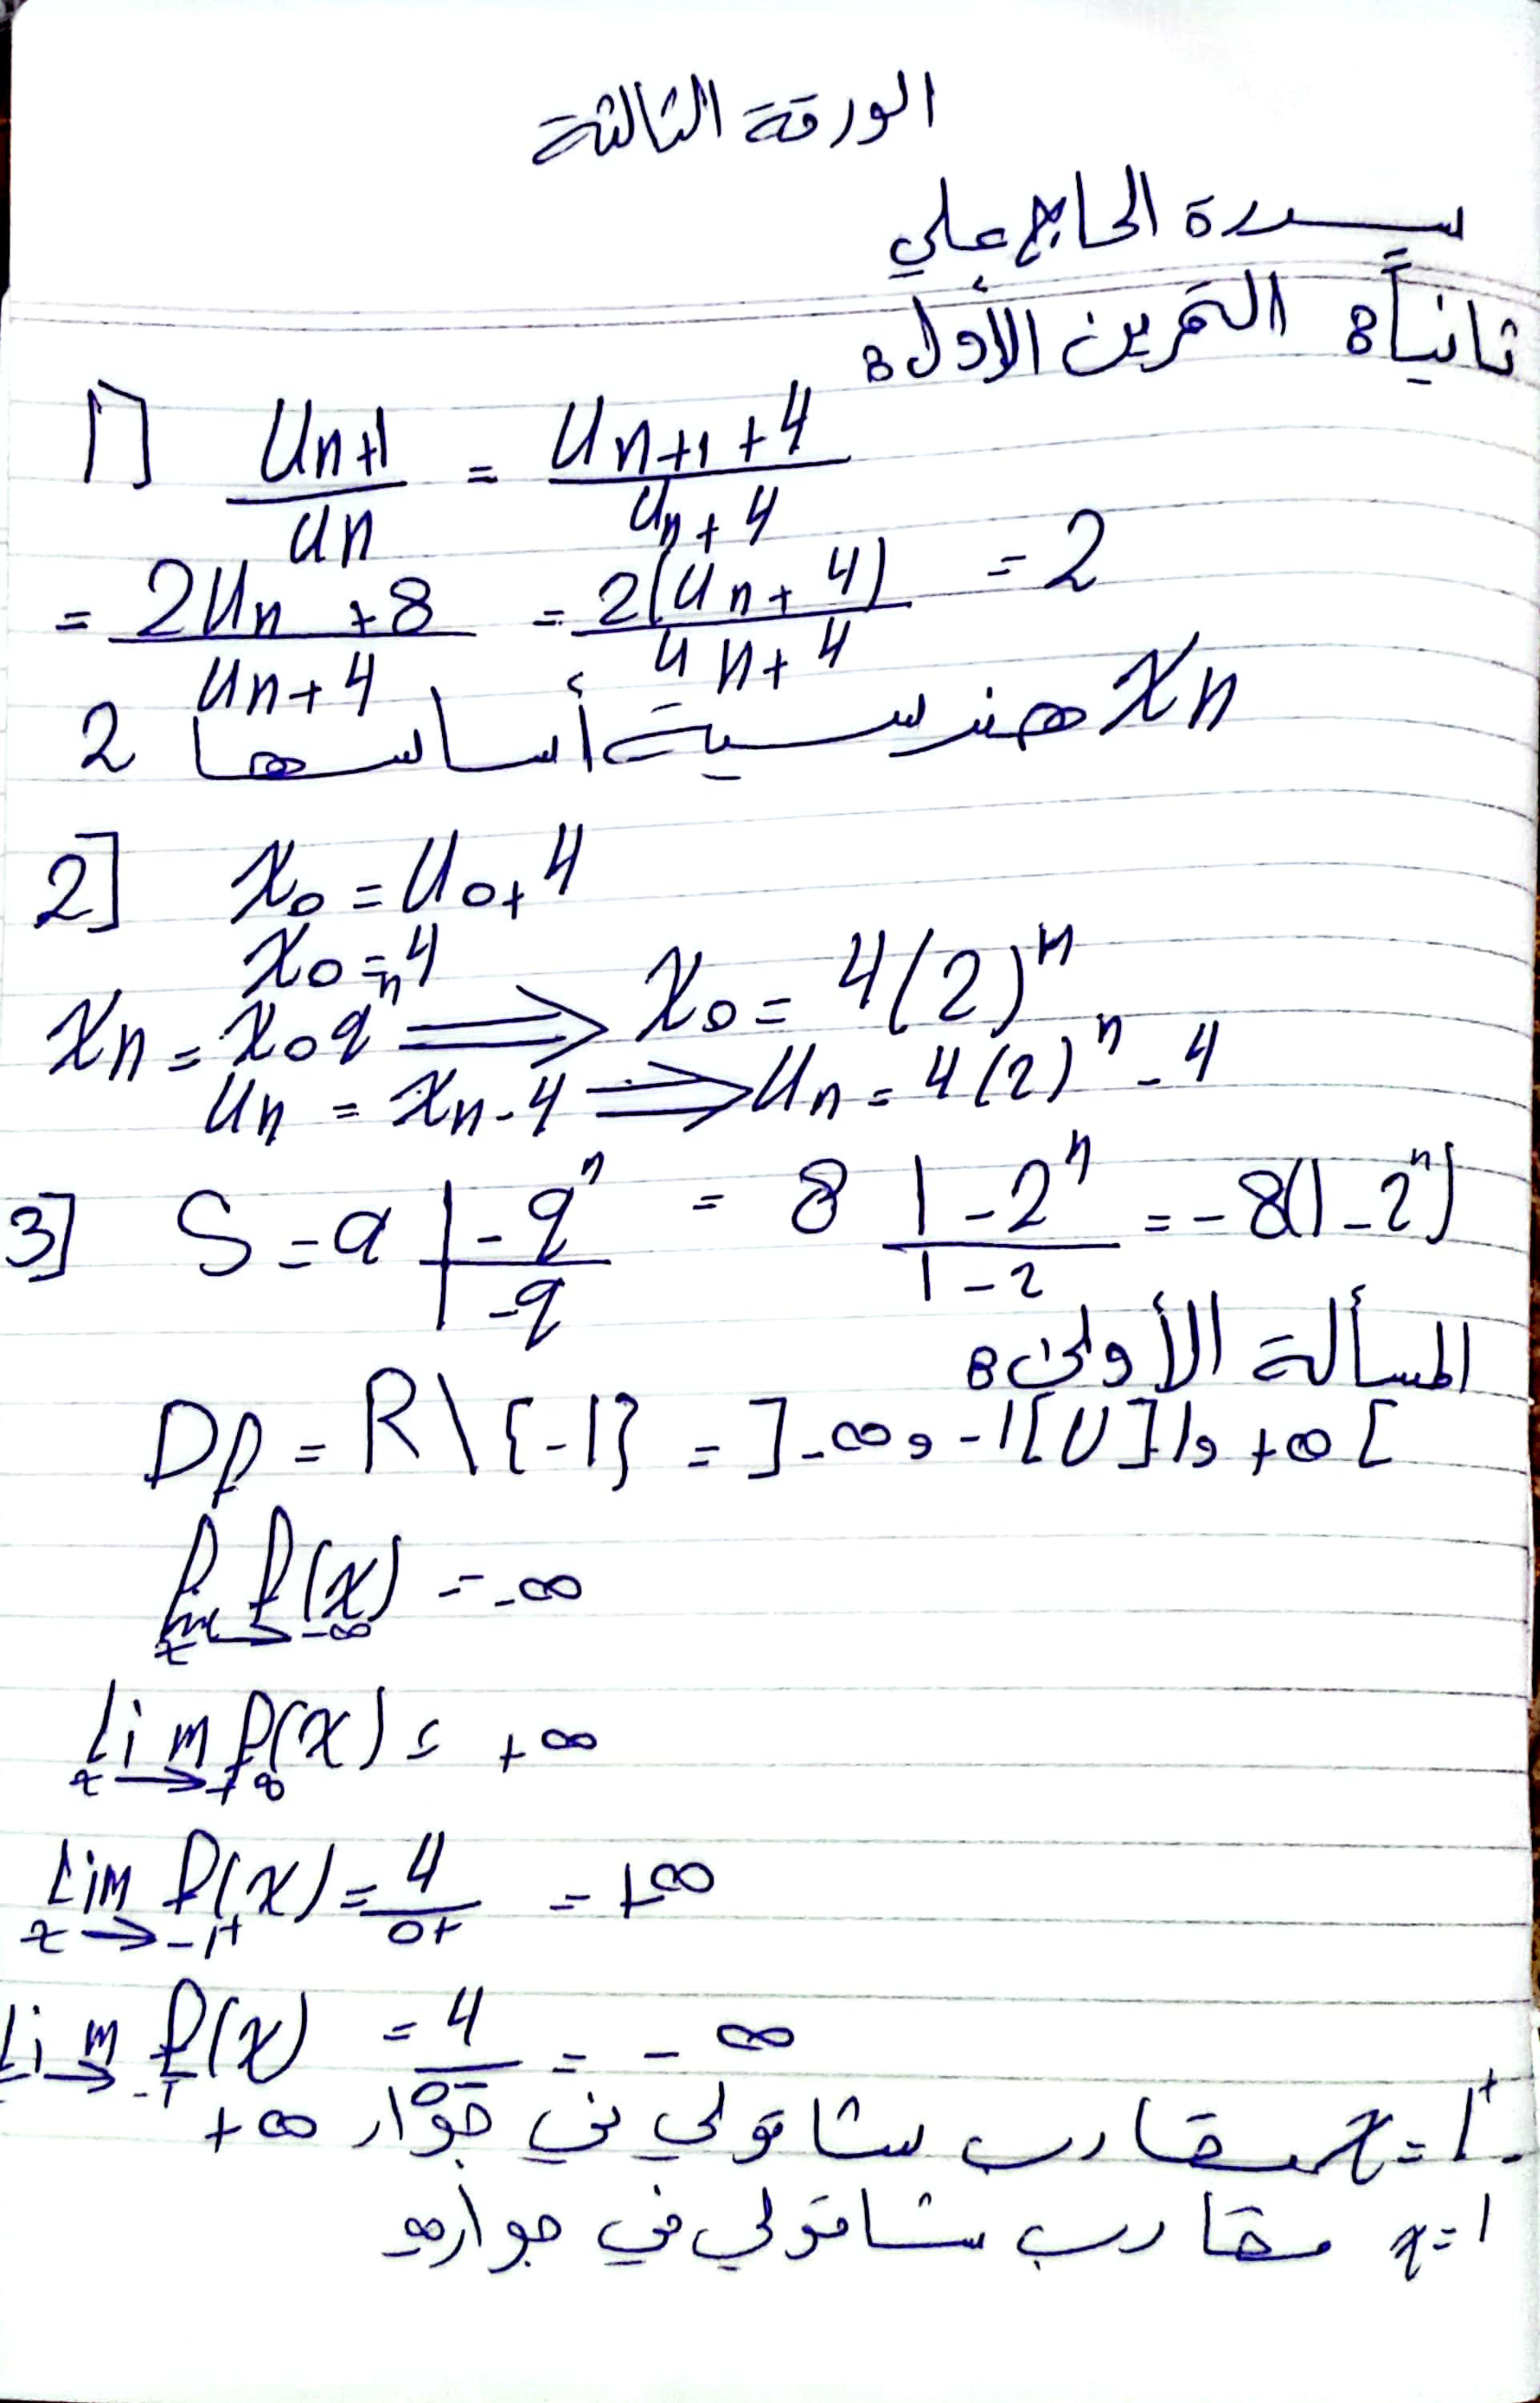 الورقة الثالثة
سدرة الحاج علي
ثانياً: التمرين الأول:
1] Un+1 / Un = Un+1 + 4 / Un + 4
= 2Un + 8 / Un + 4 = 2(Un + 4) / Un + 4 = 2
Xn هندسية أساسها 2
2] X0 = U0 + 4
X0 = 4
Xn = X0 q^n ⟹ X0 = 4(2)^n
Un = Xn - 4 ⟹ Un = 4(2)^n - 4
3] S = a 1 - q^n / 1 - q = 8 1 - 2^n / 1 - 2 = -8(1 - 2^n)
المسألة الأولى:
Df = R \ {-1} = ]-∞, -1[ U ]-1, +∞[
lim f(x) = -∞ x → -∞
lim f(x) = +∞ x → +∞
lim f(x) = 4 / 0+ = +∞ x → -1+
lim f(x) = 4 / 0- = -∞ → -1-
x = -1 مقارب شاقولي في جوار +∞
x = -1 مقارب شاقولي في جوار -∞